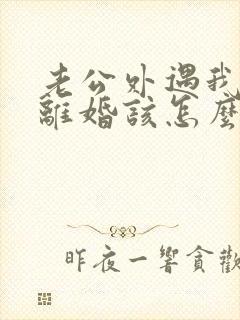 老公外遇我
離婚該怎麼
昨夜一響貪歡